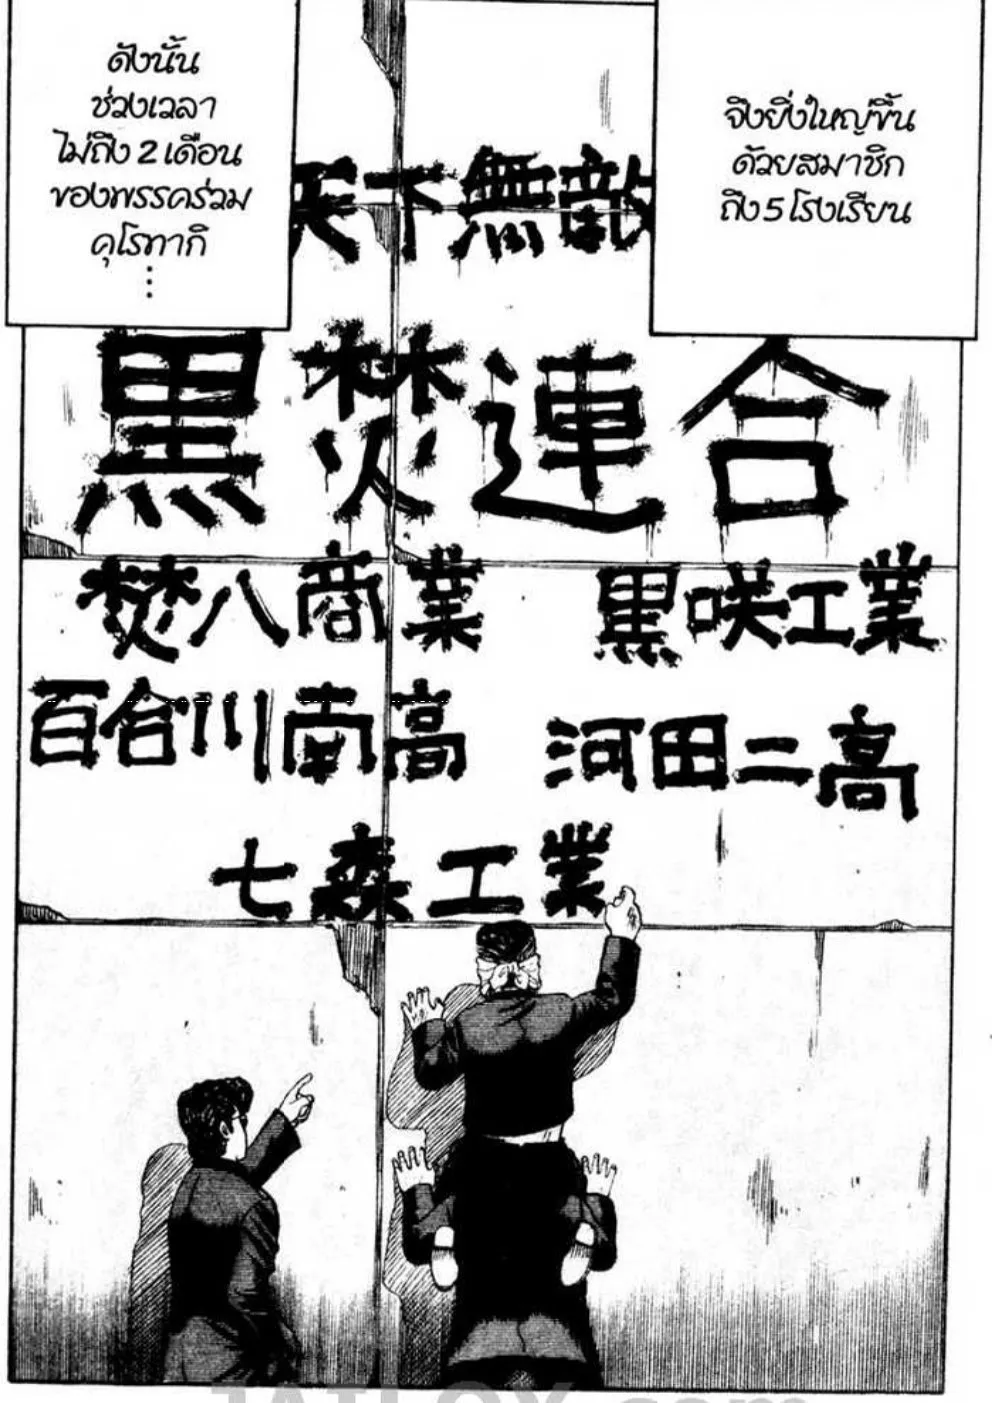 จึงยิ่งใหญ่ขึ้น
ด้วยสมาชิก
ถึง 5 โรงเรียน
ดังนั้น
ช่วงเวลา
ไม่ถึง 2 เดือน
ของพรรคร่วม
คุโรทากิ
⋮
天下無敵
黒焚連合
焚八商業 黒咲工業
百合川南高 河田二高
七森工業